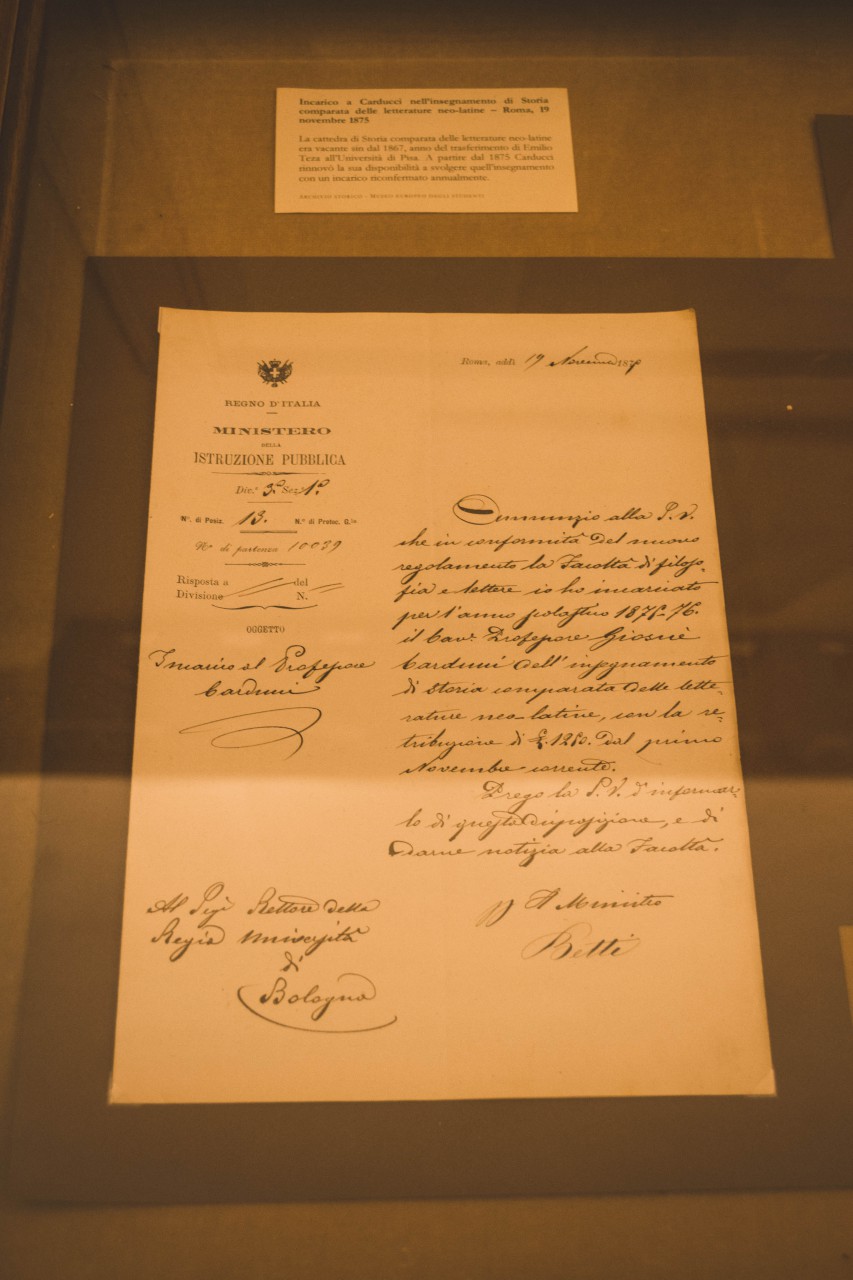 Incarico a Carducci nell'insegnamento di Storia
comparata delle letterature neo-latine – Roma, 19
novembre 1875
La cattedra di Storia comparata delle letterature neo-latine
era vacante sin dal 1867, anno del trasferimento di Emilio
Teza all'Università di Pisa. A partire dal 1875 Carducci
rinnovò la sua disponibilità a svolgere quell'insegnamento
con un incarico riconfermato annualmente.
Archivio storico - Museo europeo degli studenti
REGNO D'ITALIA
MINISTERO
DELLA
ISTRUZIONE PUBBLICA
Div.e 3a Sez. 1a
N°. di Posiz. 13. N.° di Protoc. G.le
N° di partenza 10039
Risposta a del
Divisione N.
OGGETTO
Incarico al Professore
Carducci
Al Sigr Rettore della
Regia Università
di
Bologna
Roma, addì 19 Novembre 1875
Annunzio alla S.V.
che in conformità del nuovo
regolamento la Facoltà di filoso-
fia e lettere io ho incaricato
per l'anno scolastico 1875-76.
il Cav. Professore Giosuè
Carducci dell'insegnamento
di storia comparata delle lette-
rature neo-latine, con la re-
tribuzione di £. 1250. dal primo
Novembre corrente.
Prego la S.V. d'informar-
lo di questa disposizione, e di
darne notizia alla Facoltà.
Il Ministro
Betti